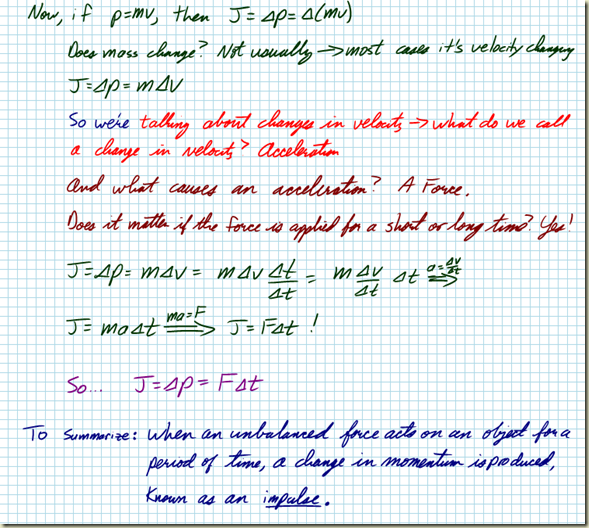 Now, if p=mv, then J=Δp=Δ(mv)
Does mass change? Not usually → most cases it's velocity changing
J=Δp=mΔv
So we're talking about changes in velocity → what do we call
a change in velocity? Acceleration
And what causes an acceleration? A Force.
Does it matter if the force is applied for a short or long time? Yes!
J=Δp=mΔv= mΔv Δt/Δt = m Δv/Δt Δt a=Δv/Δt ⇒
J=maΔt ma=F ⇒ J=FΔt !
So... J=Δp=FΔt
To summarize: When an unbalanced force acts on an object for a
period of time, a change in momentum is produced,
known as an impulse.